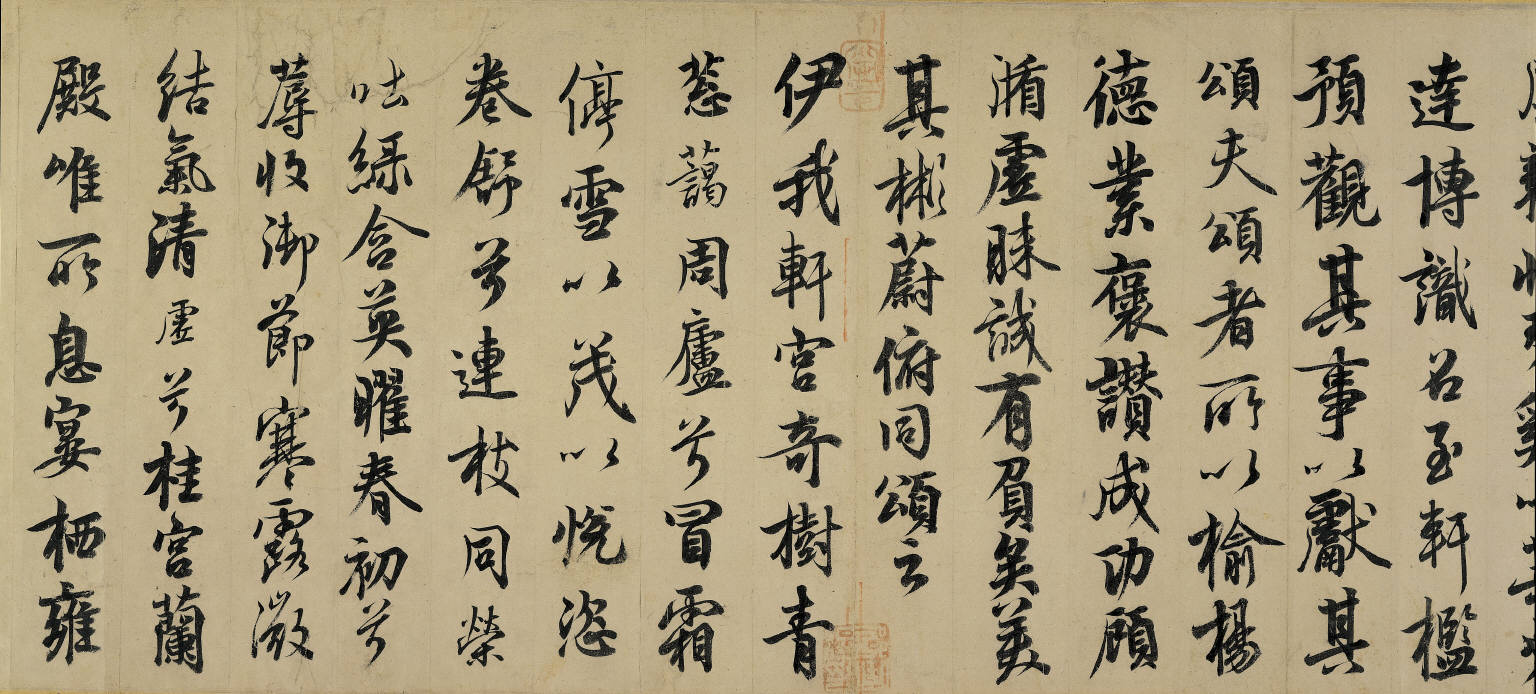 達博識召至軒檻
預觀其事以獻其
頌夫頌者所以榆楊
德業褒讚成功顧
循虛昧誠有負矣美
其彬蔚俯同頌云
伊我軒宮奇樹青
蔥藹周廬兮冒霜
停雪以茂以悅恣
卷舒兮連枝同榮
吐綠含英曜春初兮
蓐收御節寒露微
結氣清虛兮桂宮蘭
殿唯所息宴栖雍